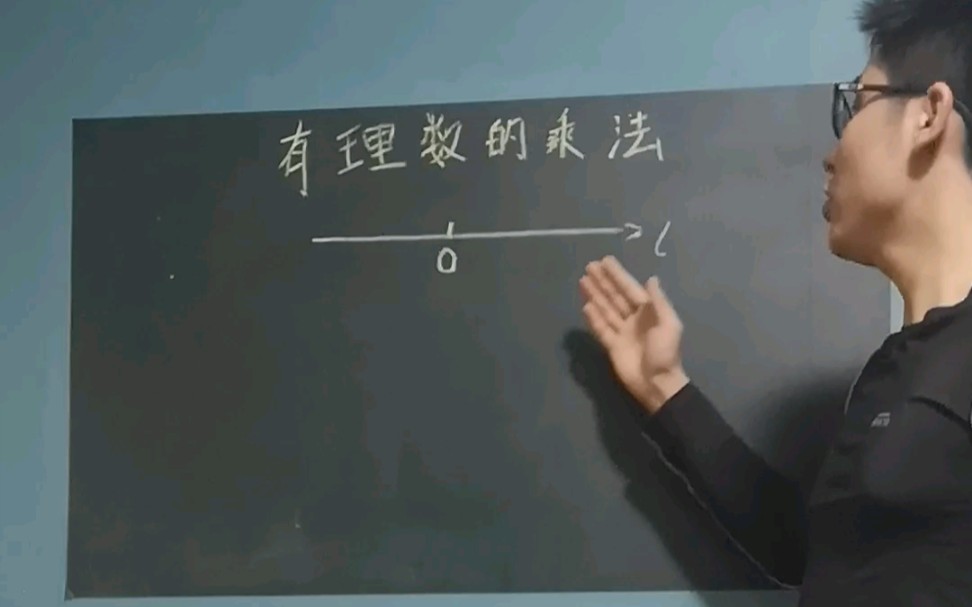 有理数的乘法
0
l